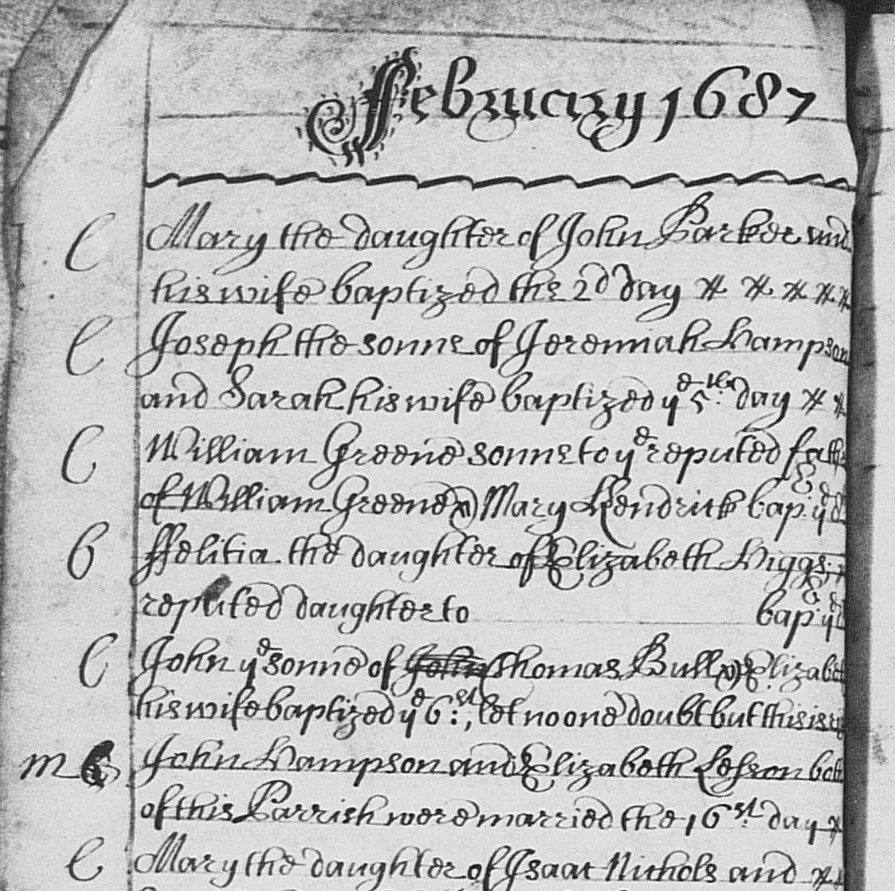 ffebruary 1687
C Mary the daughter of John Parker and
his wife baptized the 2d day
C Joseph the sonne of Jeremiah Hampson
and Sarah his wife baptized ye 5:th day
C William Greene sonne to ye reputed
of William Greene & Mary Kendrick bap: ye
B ffelitia the daughter of Elizabeth Higgs
reputed daughter to bap: ye
C John ye sonne of John Thomas Bull & Elizabeth
his wife baptized ye 6:st, let no one doubt but this is
m John Hampson and Elizabeth Lesson both
of this Parrish were married the 16st: day
C Mary the daughter of Isaac Nichols and